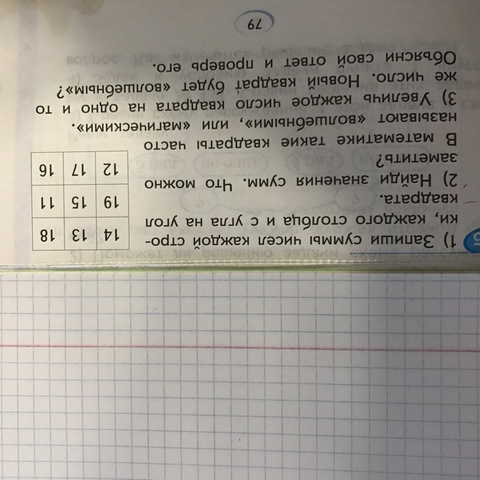 5
1) Запиши суммы чисел каждой стро-
ки, каждого столбца и с угла на угол
квадрата.
2) Найди значения сумм. Что можно
заметить?
В математике такие квадраты часто
называют «волшебными», или «магическими».
3) Увеличь каждое число квадрата на одно и то
же число. Новый квадрат будет «волшебным»?
Объясни свой ответ и проверь его.
14 13 18
19 15 11
12 17 16
79